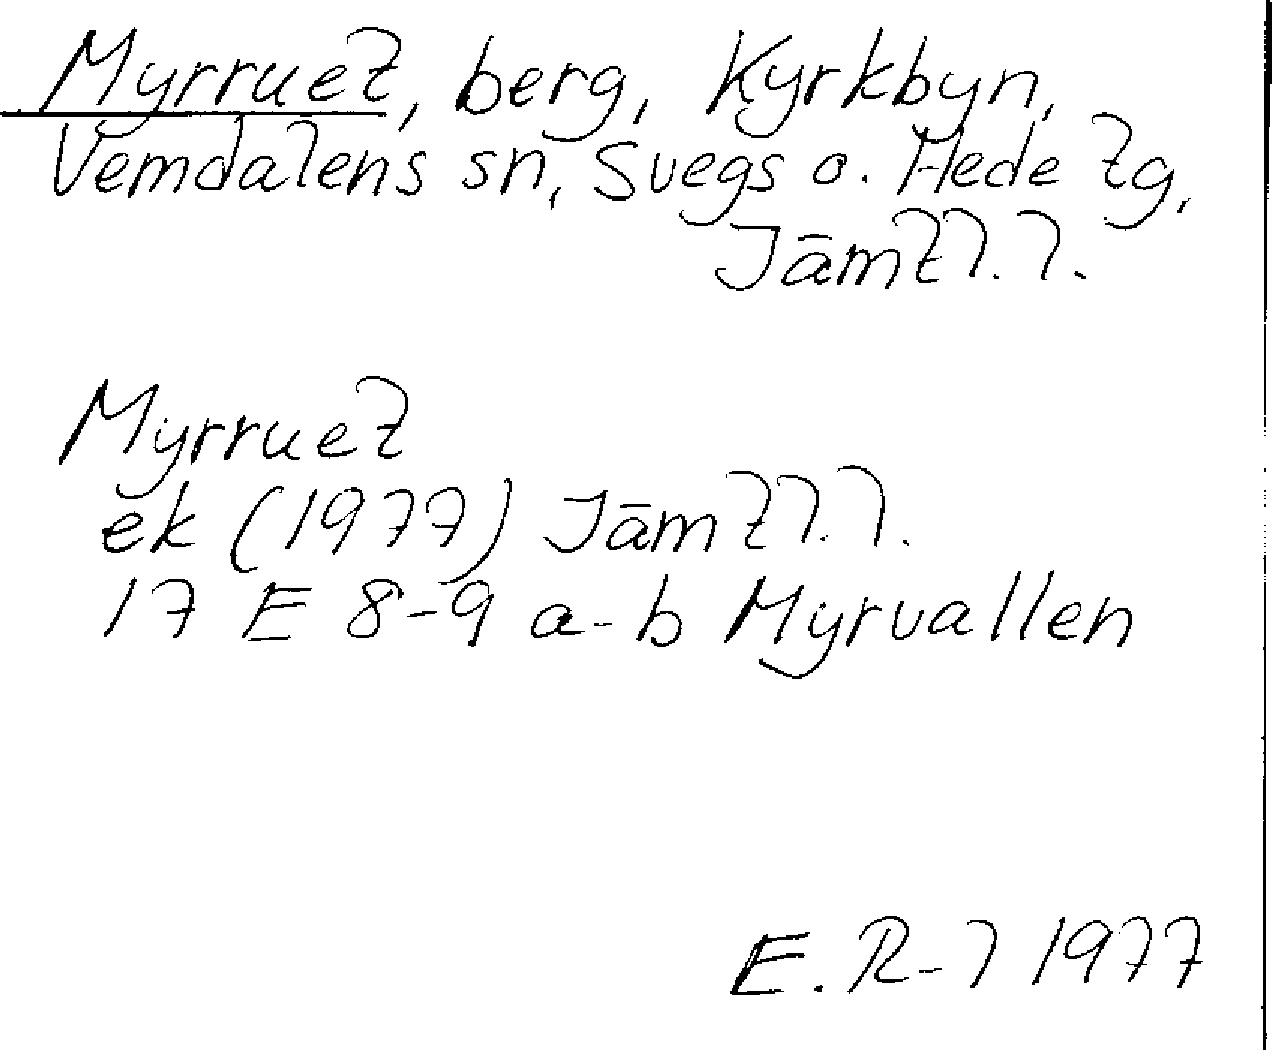 Myrruet, berg, Kyrkbyn,
Vemdalens sn, Svegs o. Hede tg,
Jämtl. l.
Myrruet
ek (1977) Jämtl. l.
17 E 8-9 a-b Myrvallen
E. R-l 1977